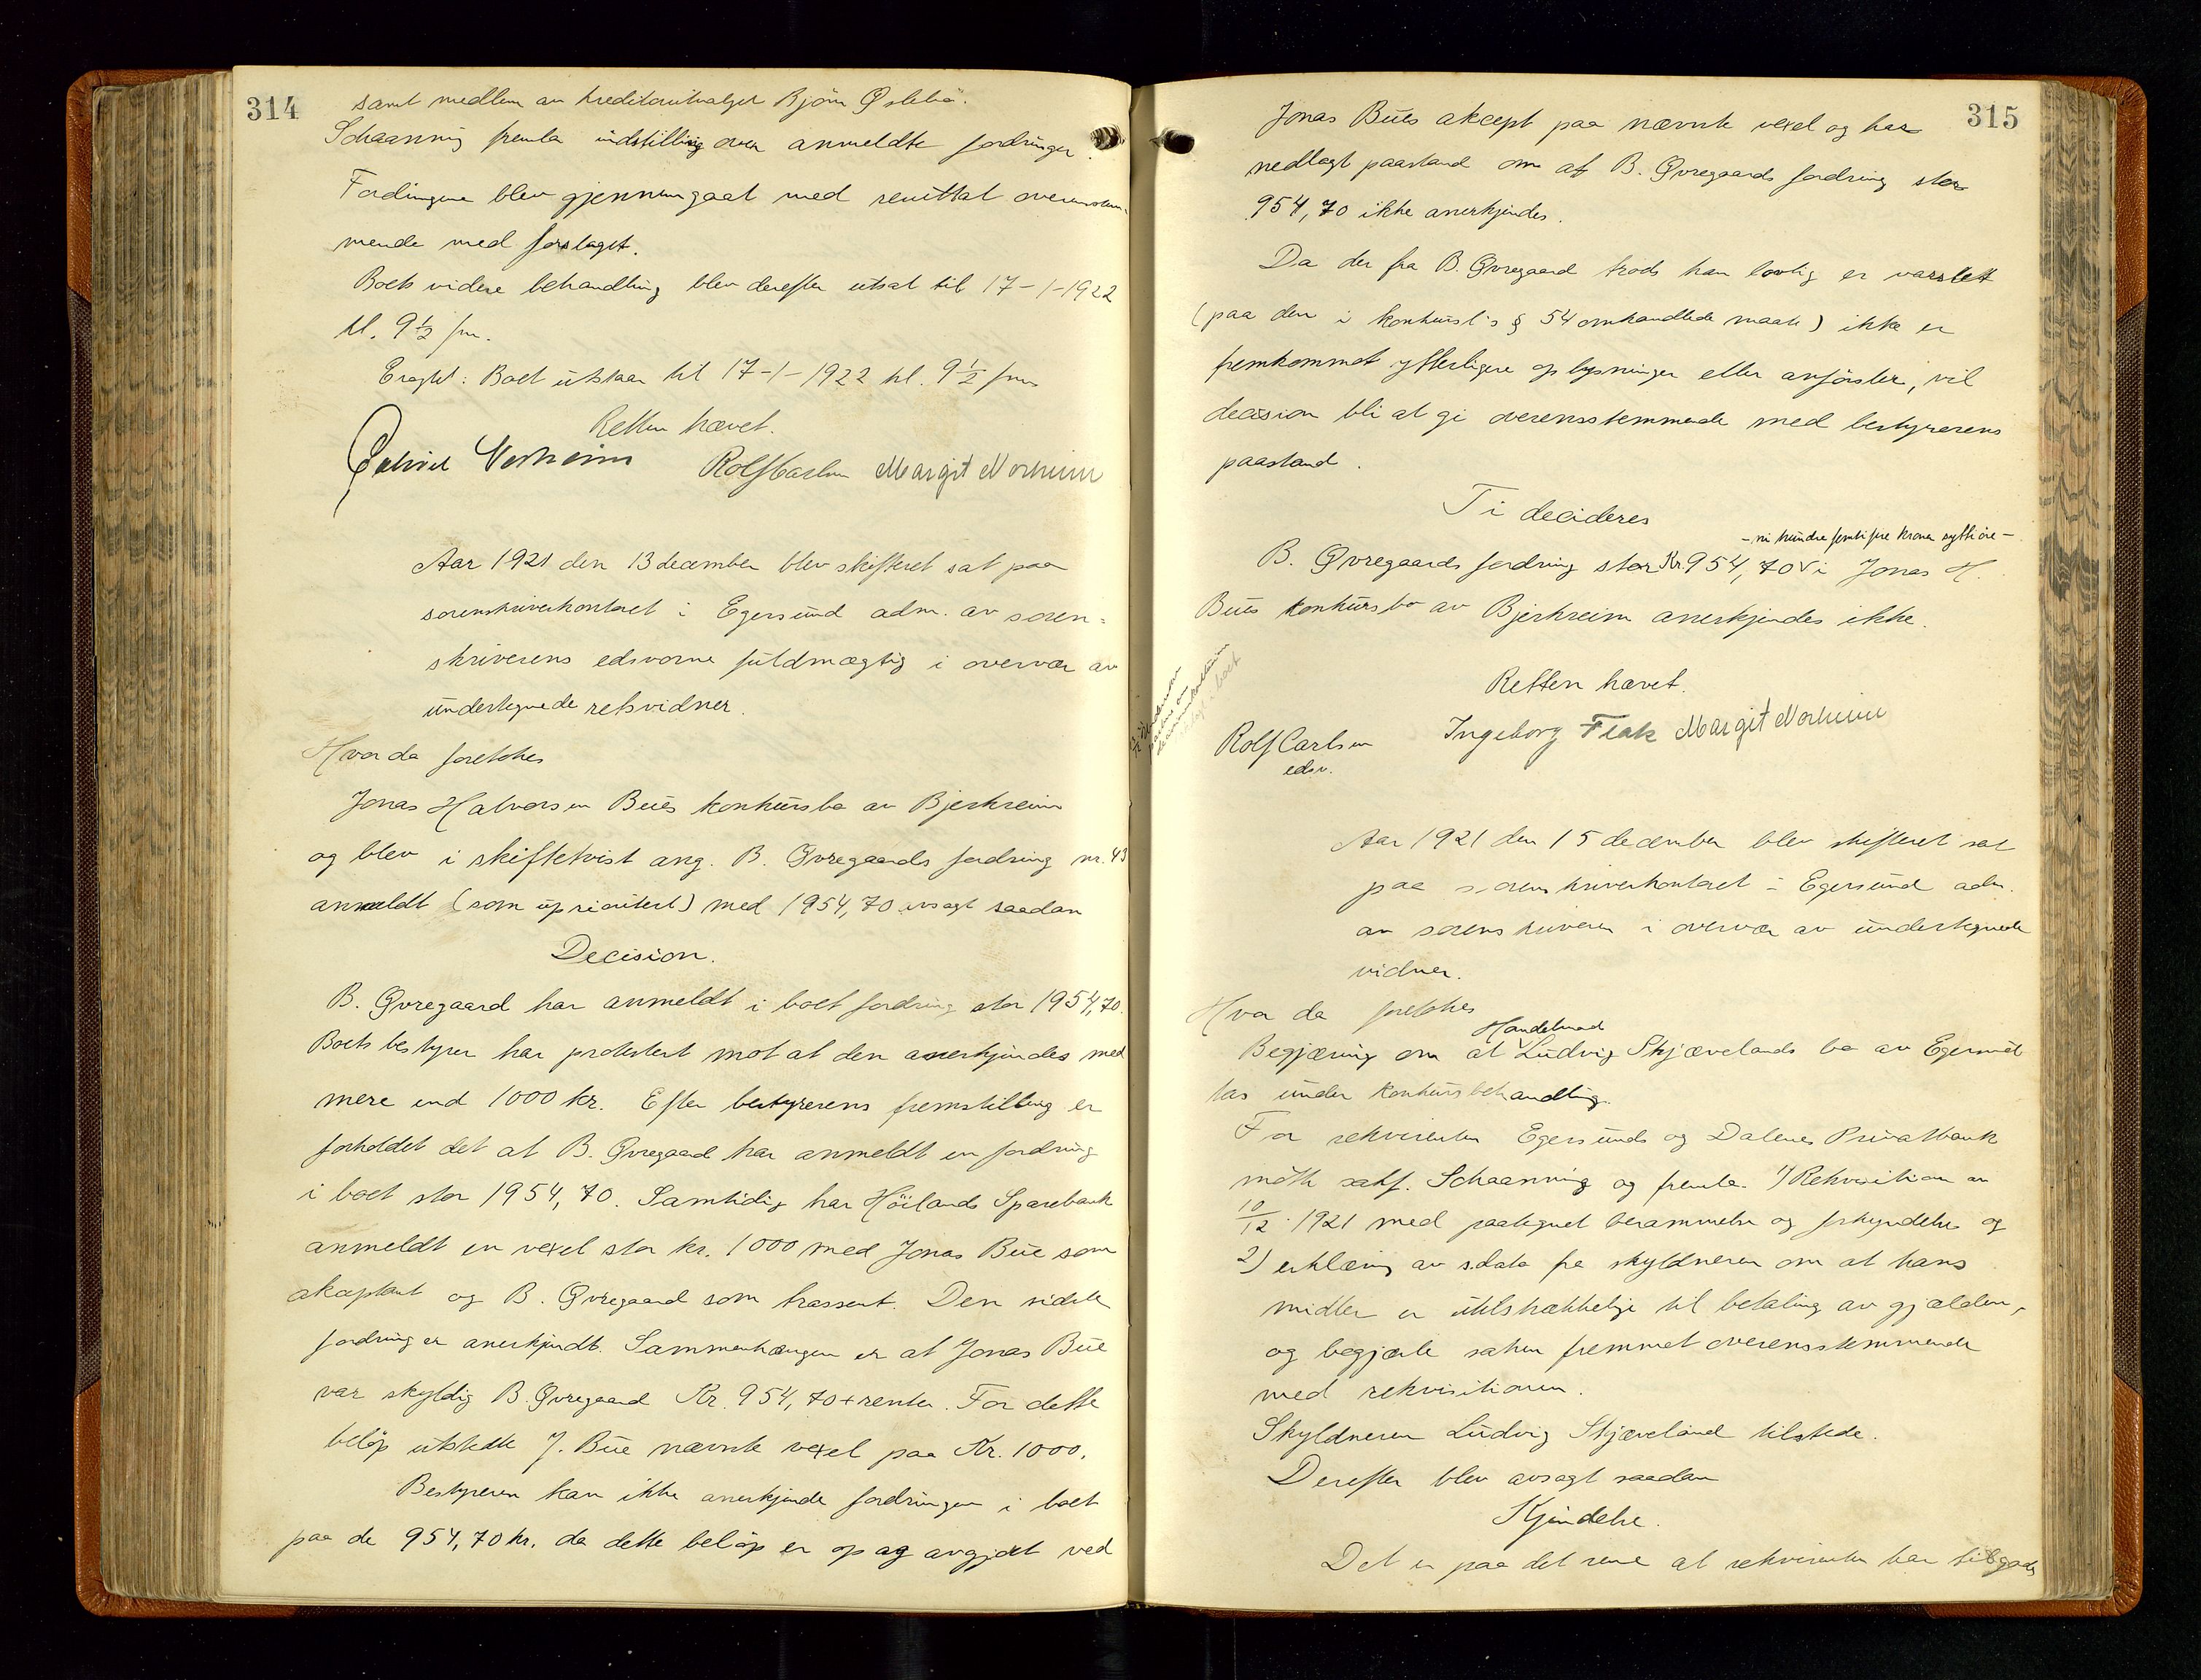 314
samt medlem av kreditorutvalget Bjørn Ørslebø.
Schaanning fremla indstilling over anmeldte fordringer.
Fordringene blev gjennemgaat med resultat overensstem-
mende med forslaget.
Boets videre behandling blev derefter utsat til 17-1-1922
kl. 9½ fm.
Eragtet: Boet utstaar til 17-1-1922 kl. 9½ fm
Retten hævet.
Gabriel Norheim Rolf Carlsen Margit Norheim
Aar 1921 den 13 december blev skifteret sat paa
sorenskriverkontoret i Egersund adm. av soren-
skriverens edsvorne fuldmægtig i overvær av
undertegnede retsvidner.
Hvorda foretokes
Jonas Halvorsen Bues konkursbo av Bjerkreim
og blev i skiftetvist ang. B. Øvregaards fordring nr. 43
anmeldt (som uprioritert) med 1954,70 avsagt saadan
Decision.
B. Øvregaard har anmeldt i boet fordring stor 1954,70.
Boets bestyrer har protestert mot at den anerkjendes med
mere end 1000 kr. Efter bestyrerens fremstilling er
forholdet det at B. Øvregaard har anmeldt en fordring
i boet stor 1954,70. Samtidig har Höilands Sparebank
anmeldt en vexel stor kr. 1000 med Jonas Bue som
akceptant og B. Øvregaard som trassent. Den sidste
fordring er anerkjendt. Sammenhængen er at Jonas Bue
var skyldig B. Øvregaard Kr. 954,70 + renter. For dette
beløp utstedte J. Bue nævnte vexel paa Kr. 1000.
Bestyreren kan ikke anerkjende fordringen i boet
paa de 954,70 kr. da dette beløp er op og avgjort ved
315
Jonas Bues akcept paa nævnte vexel og har
nedlagt paastand om at B. Øvregaards fordring stor
954,70 ikke anerkjendes.
Da der fra B. Øvregaard trods han lovlig er varslet
(paa den i konkursl's § 54 omhandlede maate) ikke er
fremkommet yfterligere oplysninger eller anførsler, vil
decision bli at gi overensstemmende med bestyrerens
paastand.
Ti decideres
- ni hundre femti fire kroner sytti øre -
B. Øvregaards fordring stor Kr. 954,70 i Jonas H.
Bues konkursbo av Bjerkreim anerkjendes ikke.
Retten hævet.
Rolf Carlsen Ingeborg Fleak Margit Norheim
edsv.
Aar 1921 den 15 december blev skifteret sat
paa sorenskriverkontoret i Egersund adm.
av sorenskriveren i overvær av undertegnede
vidner.
Hvor da foretokes
Handelsmand
Begjæring om at Ludvig Skjævelands bo av Egersund
tas under konkursbehandling.
For rekvirenten Egersunds og Dalenes Privatbank
møtte sakf. Schaanning og fremla 1) Rekvisition av
10/12 1921 med paategnet berammelse og forkyndelse og
2) erklæring av s.dato fra skyldneren om at hans
midler er utilstrækkelige til betaling av gjælden,
og begjærte saken fremmet overensstemmende
med rekvisitionen.
Skyldneren Ludvig Skjæveland tilstede.
Derefter blev avsagt saadan
Kjendelse.
Det er paa det rene at rekvirenten har tilgode